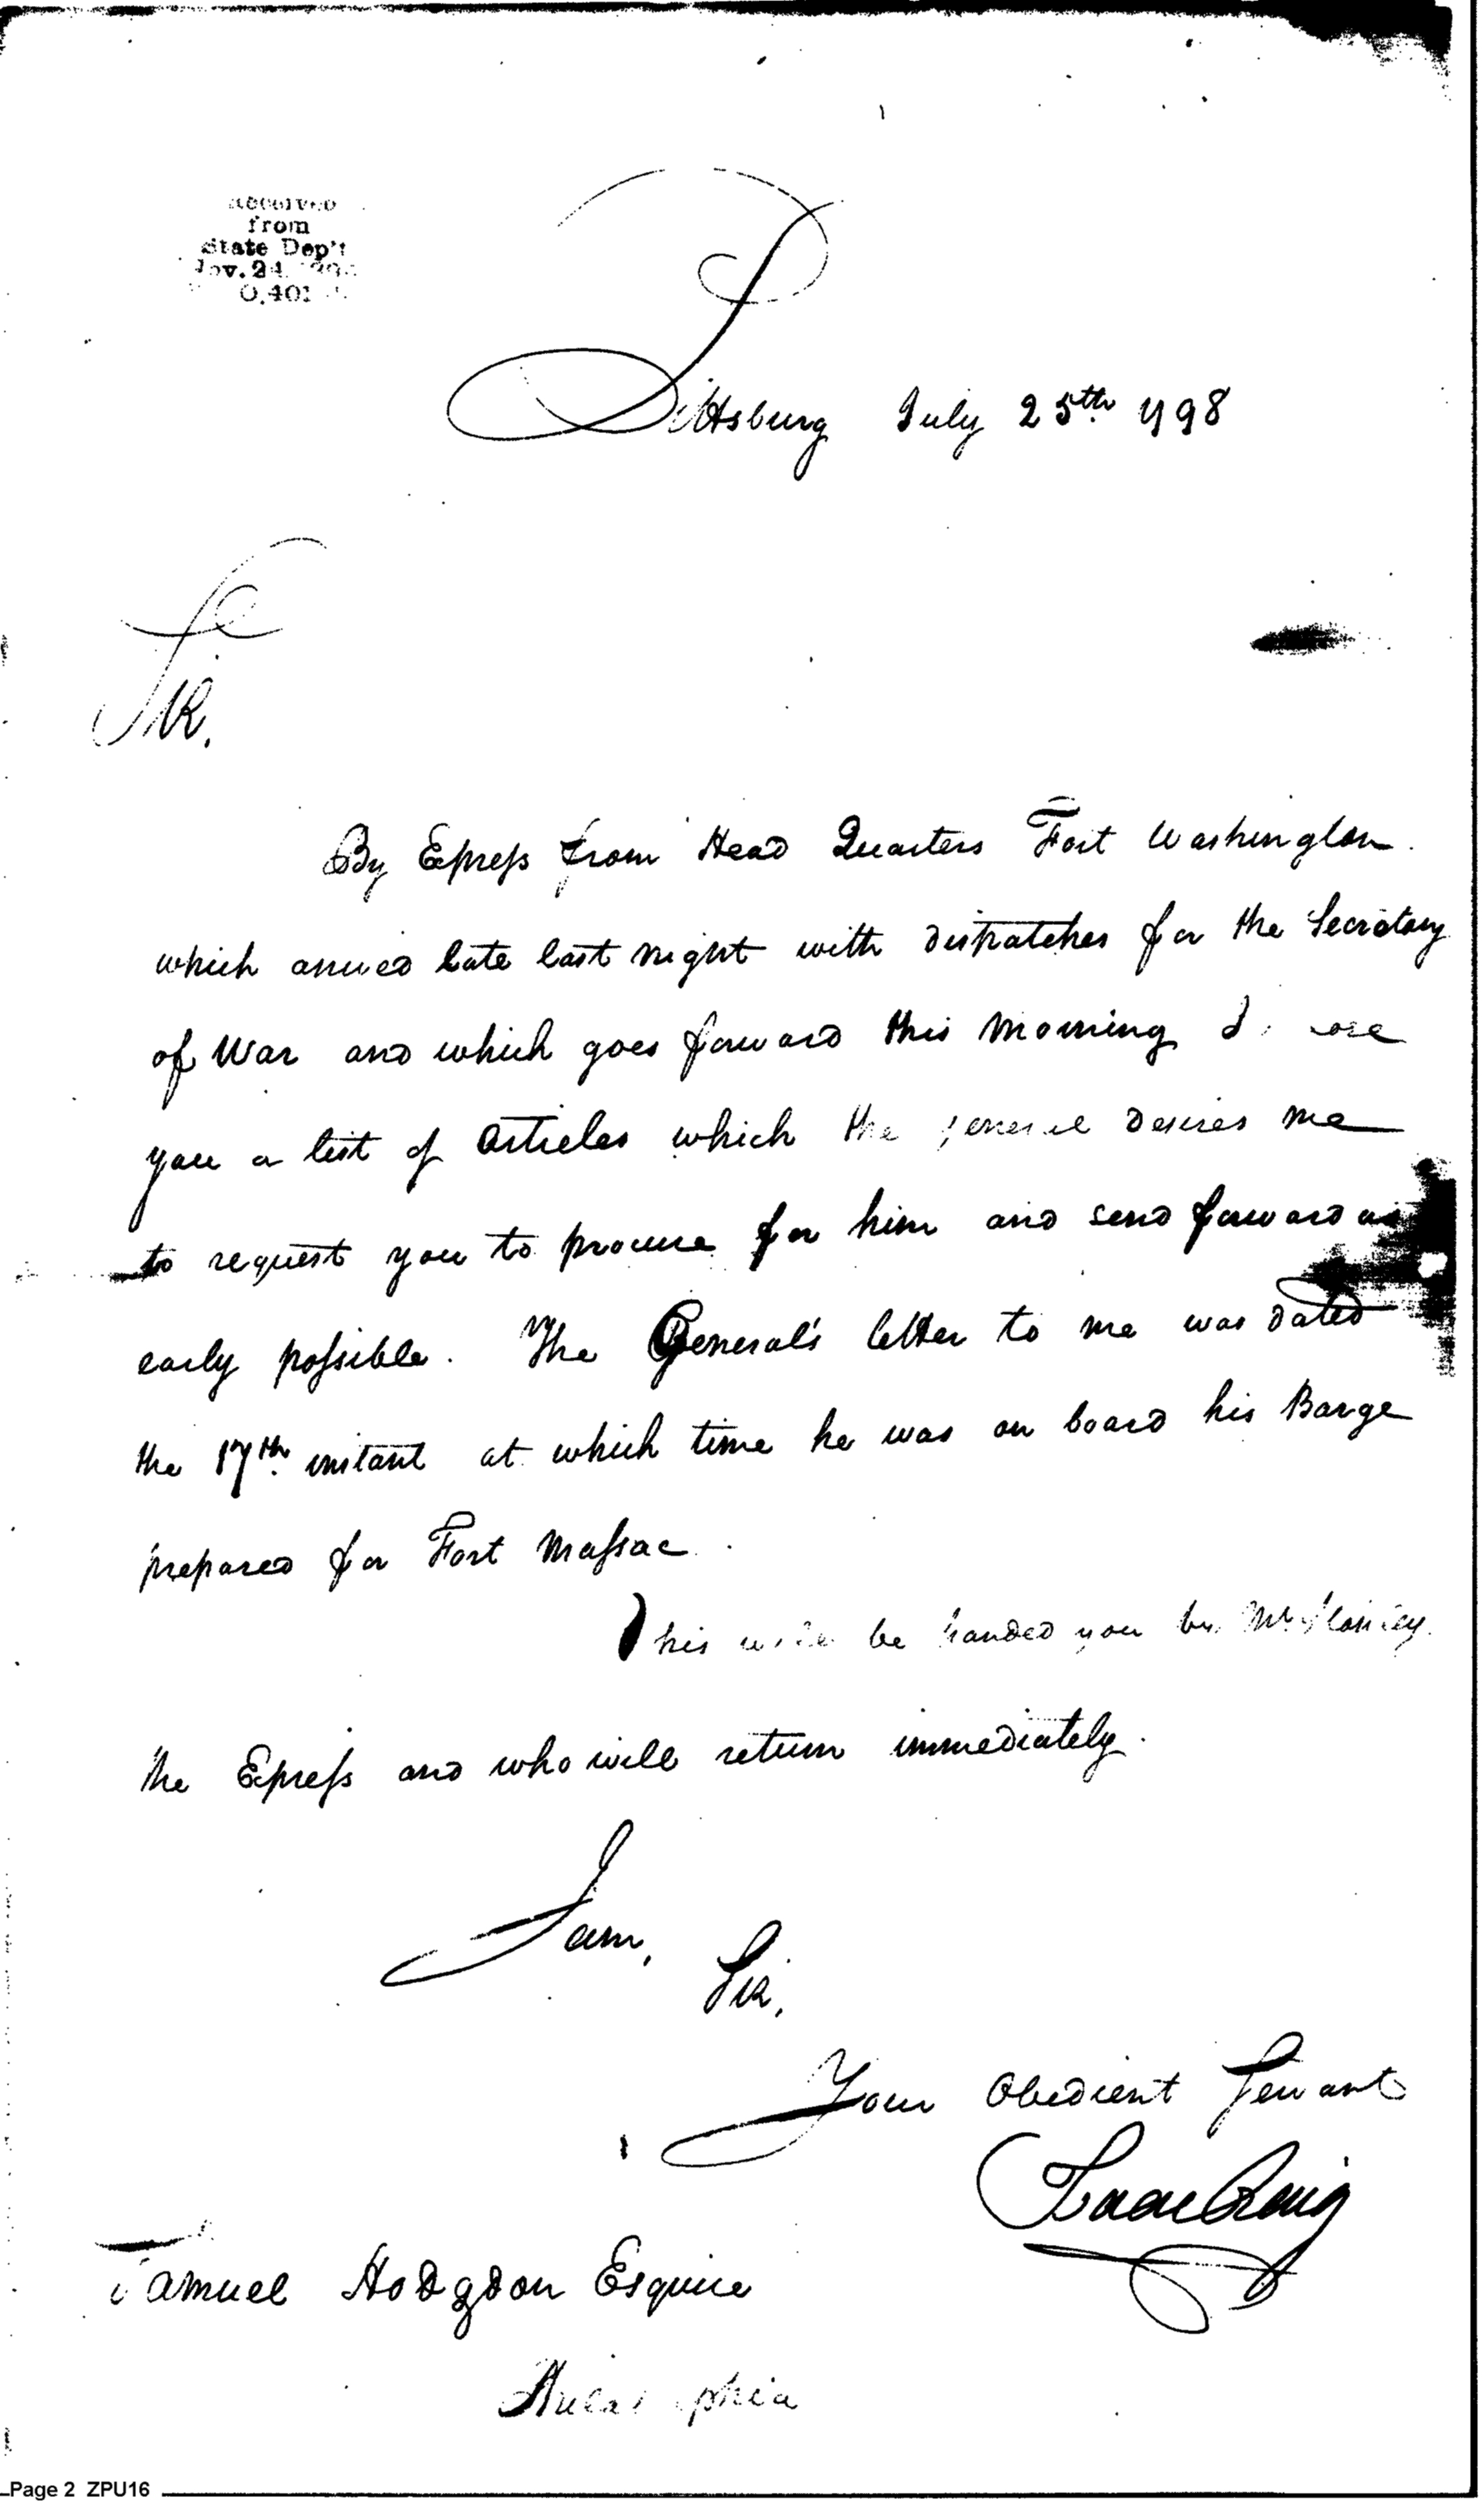 Received
from
State Dep't
Nov. 24
0.401
Pittsburg July 25th 1798
SIR.
By Express from Head Quarters Fort Washington
which arrived late last night with dispatches for the Secretary
of War and which goes forward this morning I
you a list of Articles which the general desires me
to request you to procure for him and send forward as
early possible. The General's letter to me was dated
the 17th instant at which time he was on board his Barge
prepared for Fort Massac.
This will be handed you by Mr
the Express and who will return immediately.
I am,
Sir,
Your Obedient Servant
Isaac Craig
Samuel Hodgdon Esquire
Philadelphia
Page 2 ZPU16